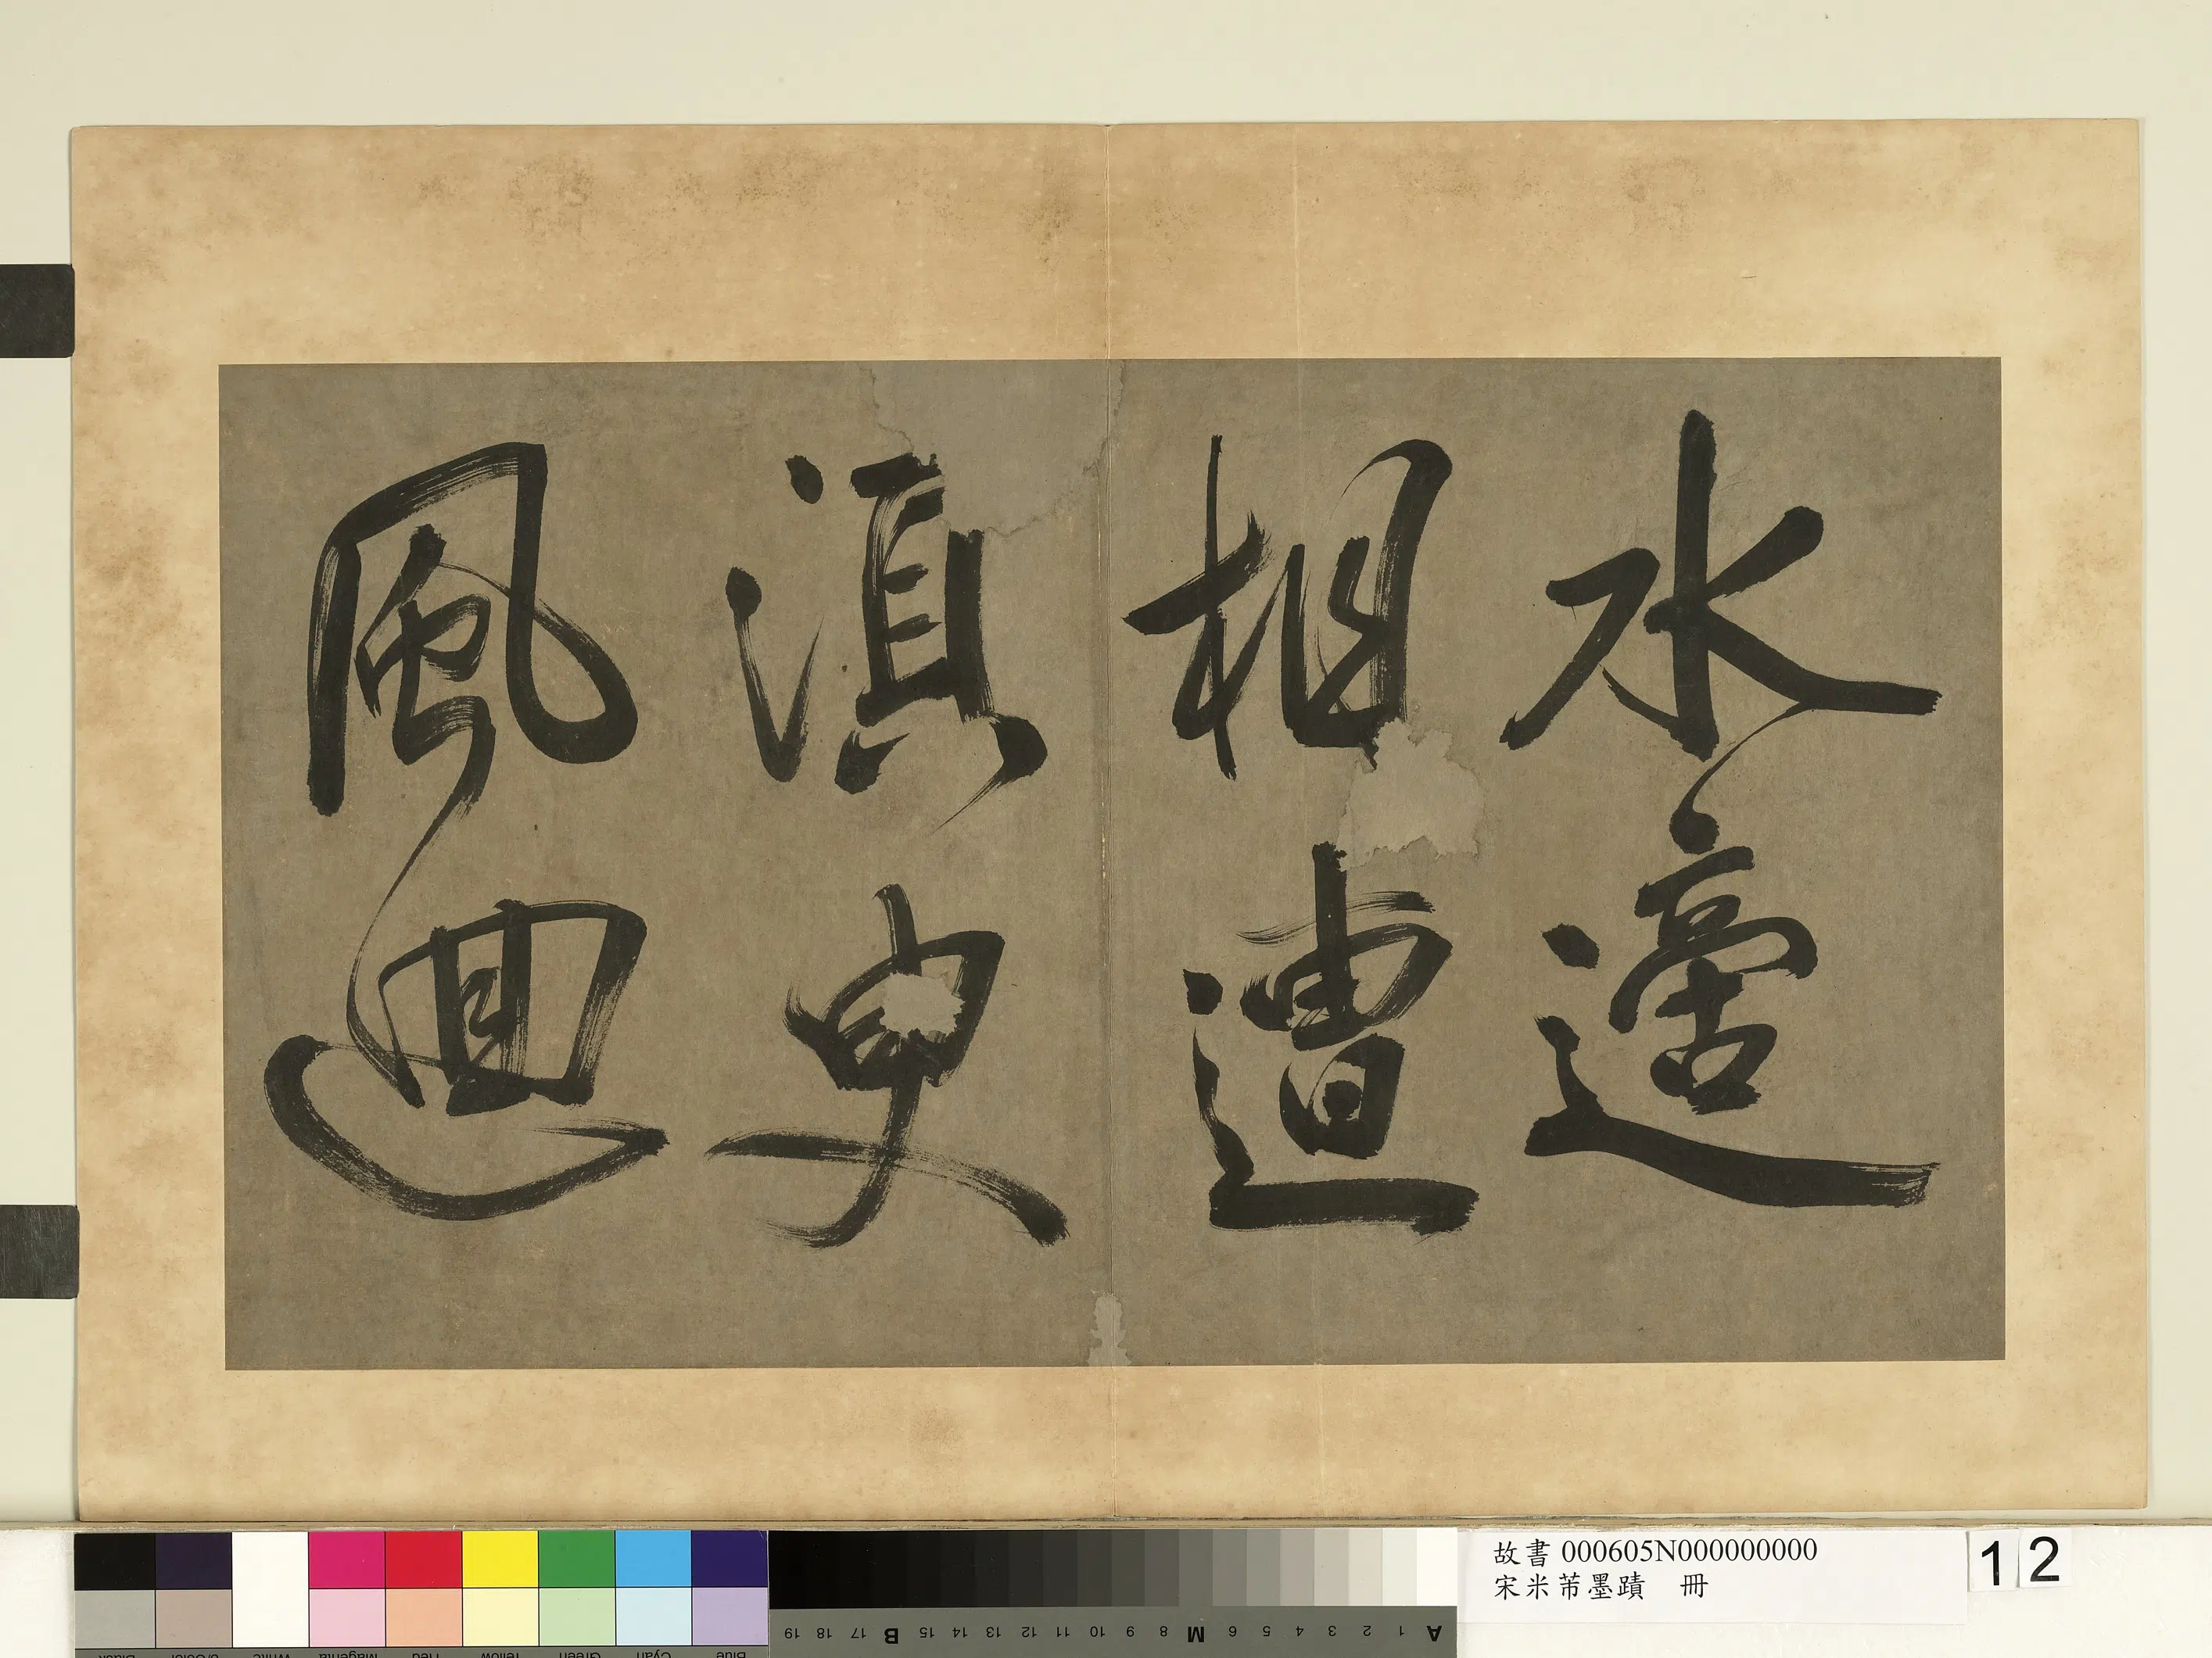 水適
相遭
湏臾
風迴
故書 000605N000000000
宋米芾墨蹟 冊
12
A 1 2 3 4 5 6 M 8 9 10 11 12 13 14 15 B 17 18 19
Blue Cyan Green Yellow Red Magenta White 3/Color Black